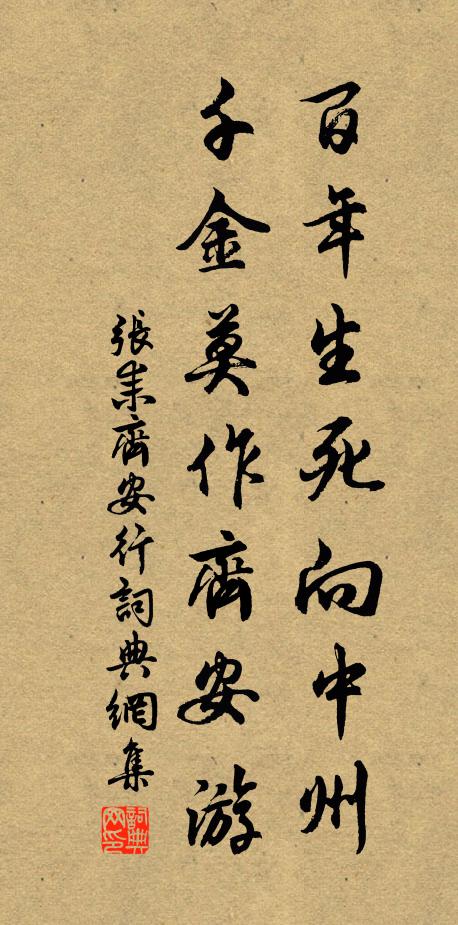 百年生死向中州
千金莫作齊安游
張耒齊安行詞典網集
詞典網印